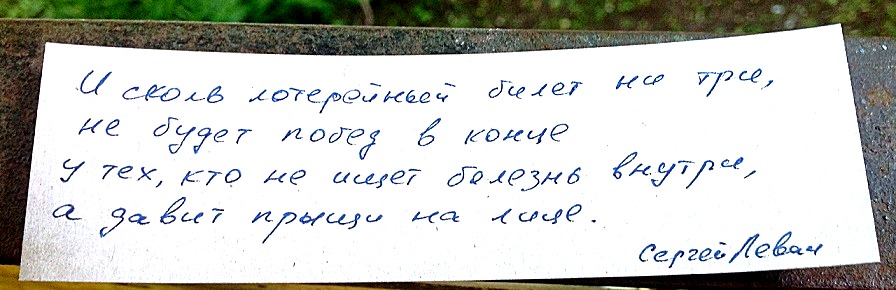 И сколь лотерейный билет ни три,
не будет побед в конце
у тех, кто не ищет болезнь внутри,
а давит прыщи на лице.
Сергей Леван